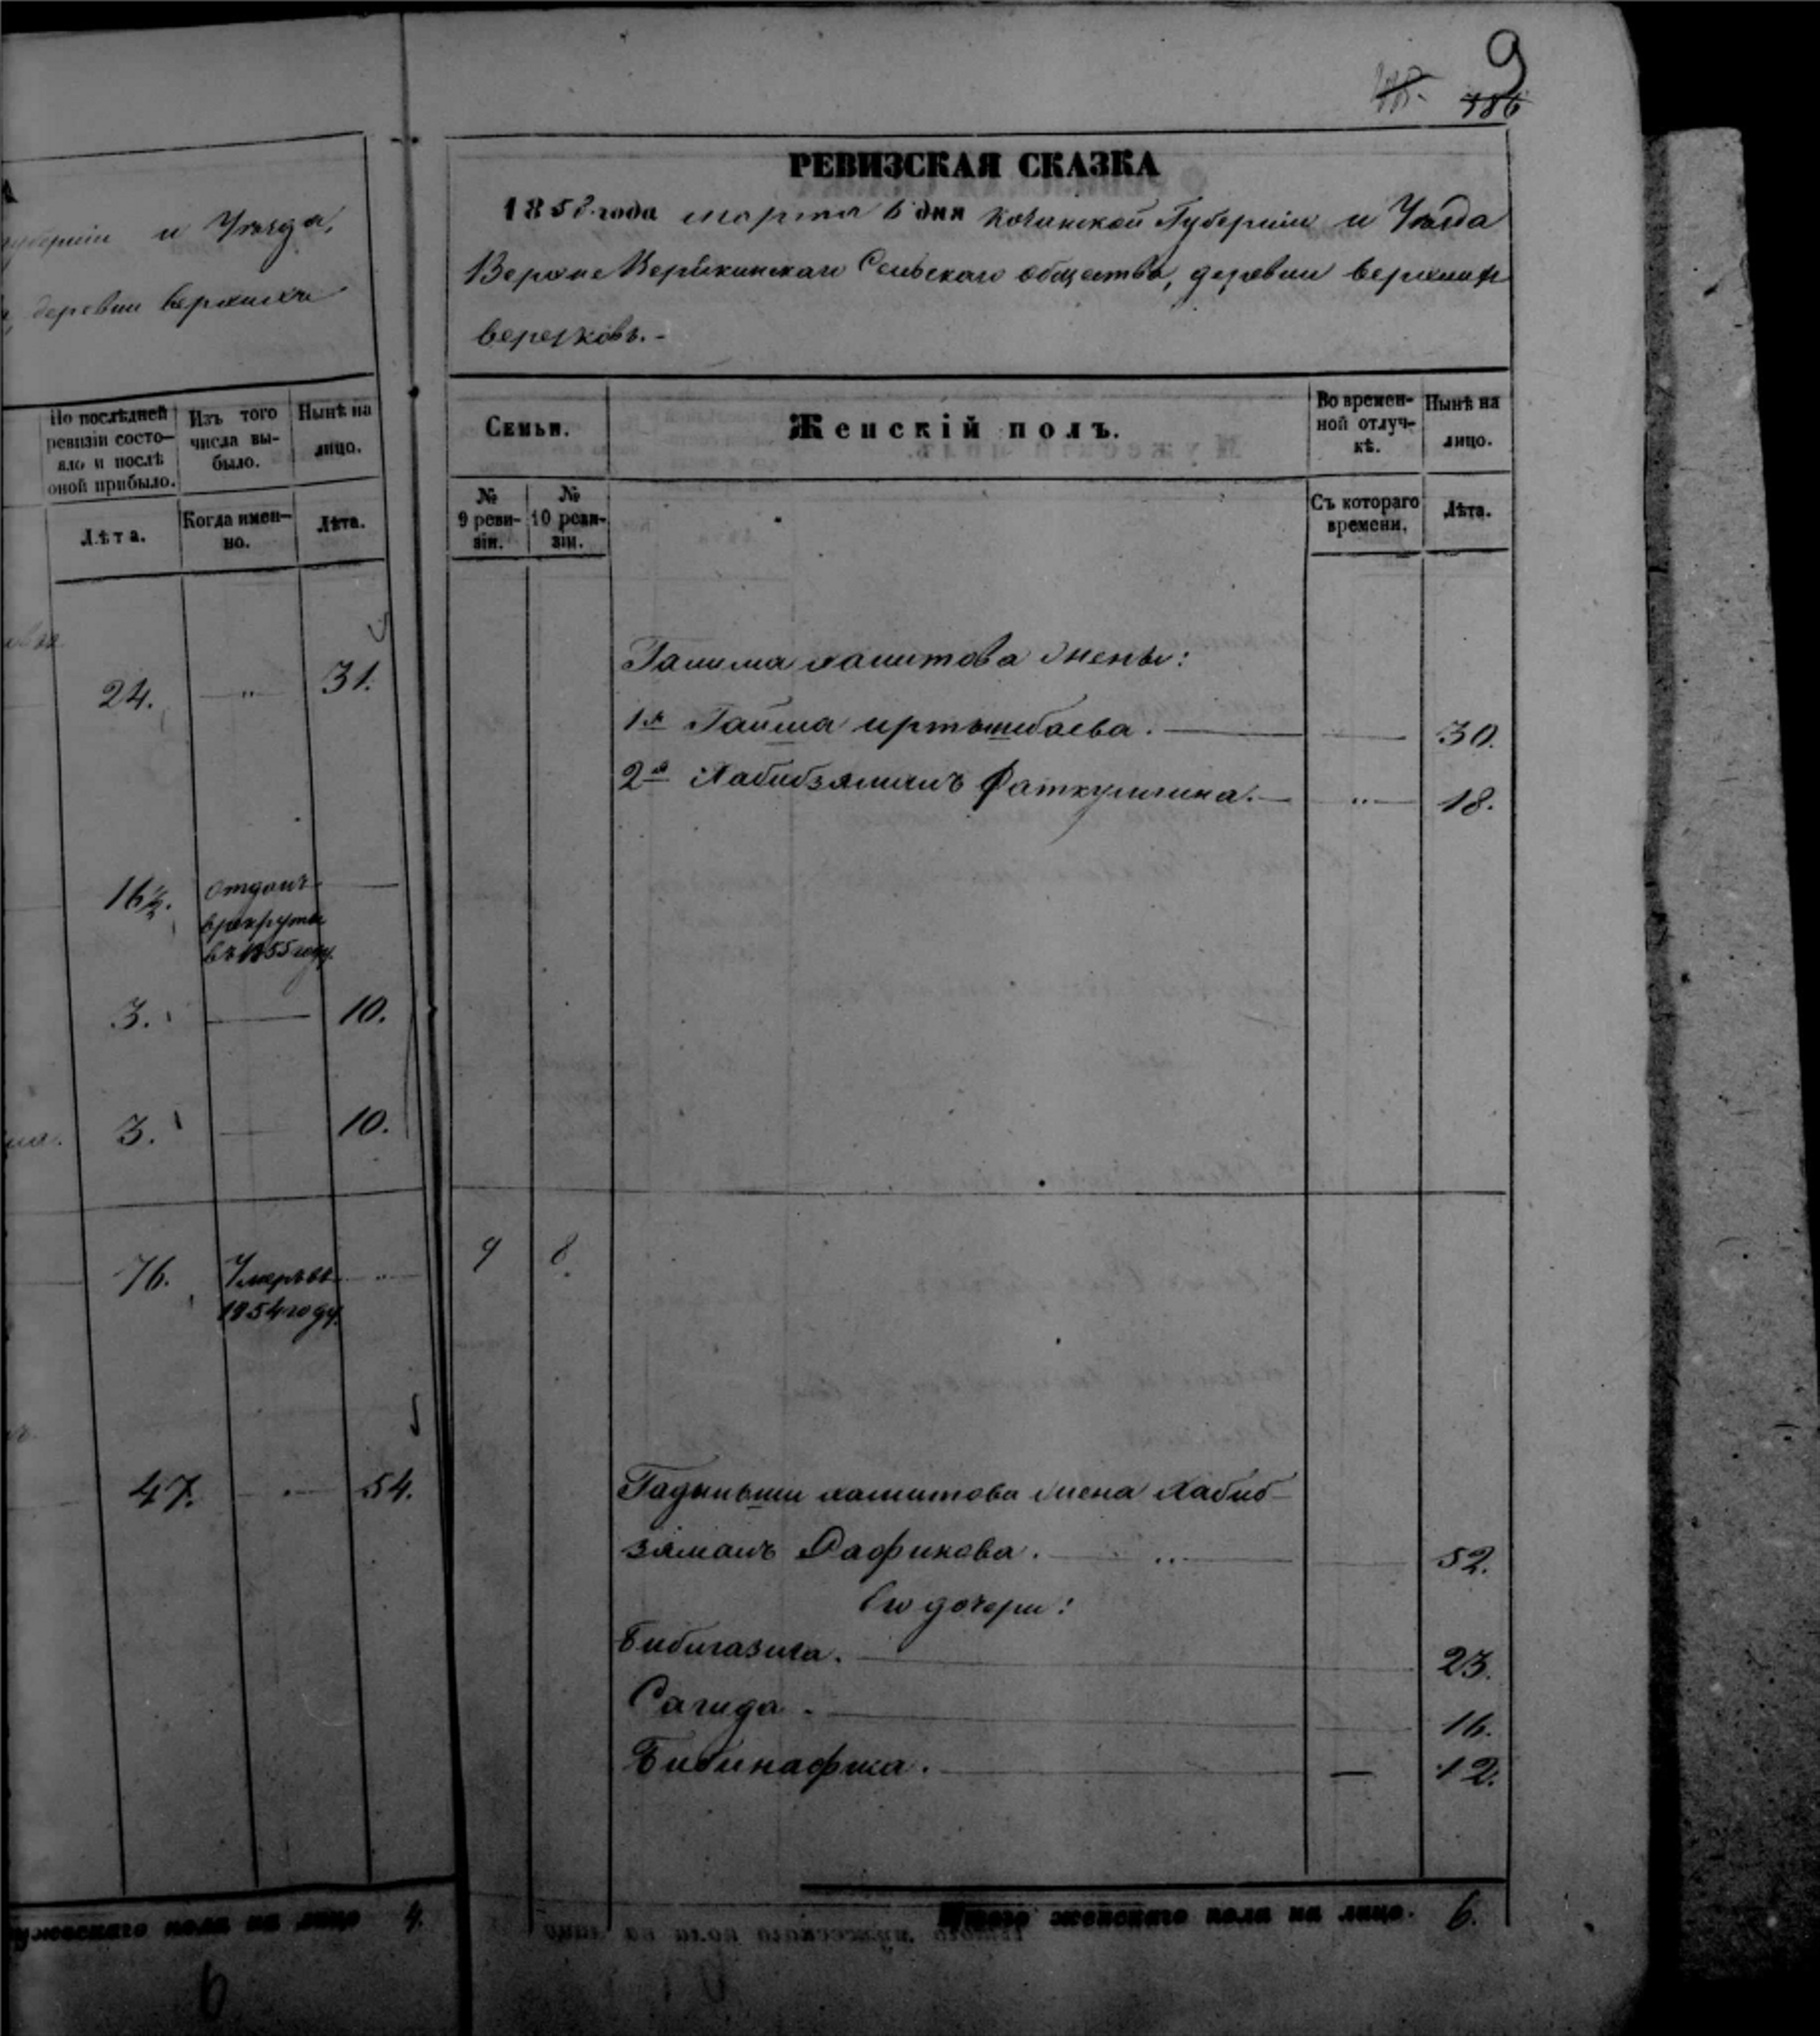 губерніи и Уѣзда,
деревни верхнихъ
По послѣдней ревизіи состо-
яло и послѣ оной прибыло.
Изъ того числа вы-
было.
Нынѣ на лицо.
Лѣта.
Когда имен-
но.
Лѣта.
24. — " — 31.
16½. отданъ
в рекруты
въ 1855 году.
3. — 10.
3. — 10.
76. Умеръ въ "
1854 году.
47. — 54.
мужескаго пола на лицо 4.
6
9
786
РЕВИЗСКАЯ СКАЗКА
1858 года марта 6 дня Казанской Губерніи и Уѣзда
Верхне Сельскаго общества, деревни верхнихъ
верезковъ.-
Семьи.
Женскій полъ.
Во времен-
ной отлуч-
кѣ.
Нынѣ на
лицо.
№
9 реви-
зіи.
№
10 реви-
зіи.
Съ котораго
времени.
Лѣта.
Галима хамитова жены:
1я Гайша иртышбаева. — 30.
2я Хабибзяманъ Фаткуллина. — " — 18.
9 8.
хамитова жена Хабиб-
зяманъ Рафикова. " 52.
Его дочери:
Бибигазиза. 23.
Сагида. 16.
Бибинафиса. — 12.
Итого женскаго пола на лицо. 6.